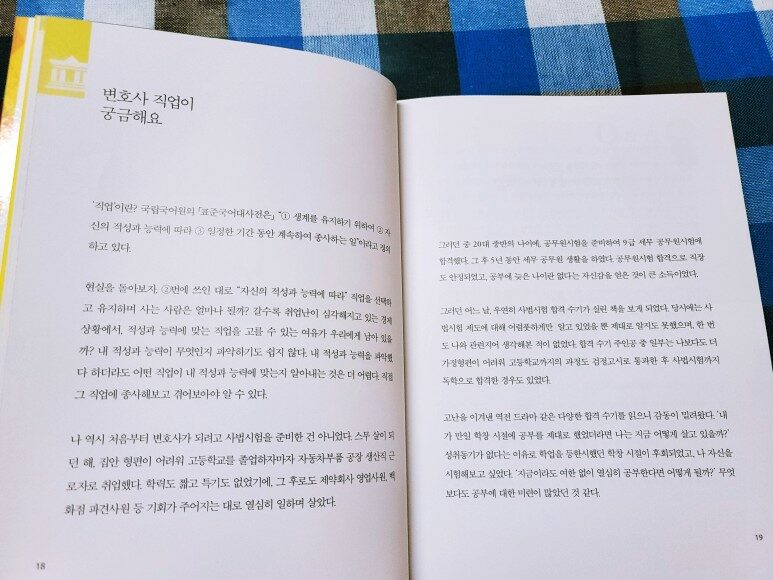 변호사 직업이
궁금해요
'직업'이란? 국립국어원의 「표준국어대사전은」 "① 생계를 유지하기 위하여 ② 자
신의 적성과 능력에 따라 ③ 일정한 기간 동안 계속하여 종사하는 일"이라고 정의
하고 있다.
현실을 돌아보자. ②번에 쓰인 대로 "자신의 적성과 능력에 따라" 직업을 선택하
고 유지하며 사는 사람은 얼마나 될까? 갈수록 취업난이 심각해지고 있는 경제
상황에서, 적성과 능력에 맞는 직업을 고를 수 있는 여유가 우리에게 남아 있을
까? 내 적성과 능력이 무엇인지 파악하기도 쉽지 않다. 내 적성과 능력을 파악했
다 하더라도 어떤 직업이 내 적성과 능력에 맞는지 알아내는 것은 더 어렵다. 직접
그 직업에 종사해보고 겪어보아야 알 수 있다.
나 역시 처음부터 변호사가 되려고 사법시험을 준비한 건 아니었다. 스무 살이 되
던 해, 집안 형편이 어려워 고등학교를 졸업하자마자 자동차부품 공장 생산직 근
로자로 취업했다. 학력도 짧고 특기도 없었기에, 그 후로도 제약회사 영업사원, 백
화점 파견사원 등 기회가 주어지는 대로 열심히 일하며 살았다.
18
그러던 중 20대 중반의 나이에, 공무원시험을 준비하여 9급 세무 공무원시험에
합격했다. 그 후 5년 동안 세무 공무원 생활을 하였다. 공무원시험 합격으로 직장
도 안정되었고, 공부에 늦은 나이란 없다는 자신감을 얻은 것이 큰 소득이었다.
그러던 어느 날, 우연히 사법시험 합격 수기가 실린 책을 보게 되었다. 당시에는 사
법시험 제도에 대해 어렴풋하게만 알고 있었을 뿐 제대로 알지도 못했으며, 한 번
도 나와 관련지어 생각해본 적이 없었다. 합격 수기 주인공 중 일부는 나보다도 더
가정형편이 어려워 고등학교까지의 과정도 검정고시로 통과한 후 사법시험까지
독학으로 합격한 경우도 있었다.
고난을 이겨낸 역전 드라마 같은 다양한 합격 수기를 읽으니 감동이 밀려왔다. '내
가 만일 학창 시절에 공부를 제대로 했었더라면 나는 지금 어떻게 살고 있을까?'
성취동기가 없다는 이유로 학업을 등한시했던 학창 시절이 후회되었고, 나 자신을
시험해보고 싶었다. '지금이라도 여한 없이 열심히 공부한다면 어떻게 될까?' 무엇
보다도 공부에 대한 미련이 많았던 것 같다.
19